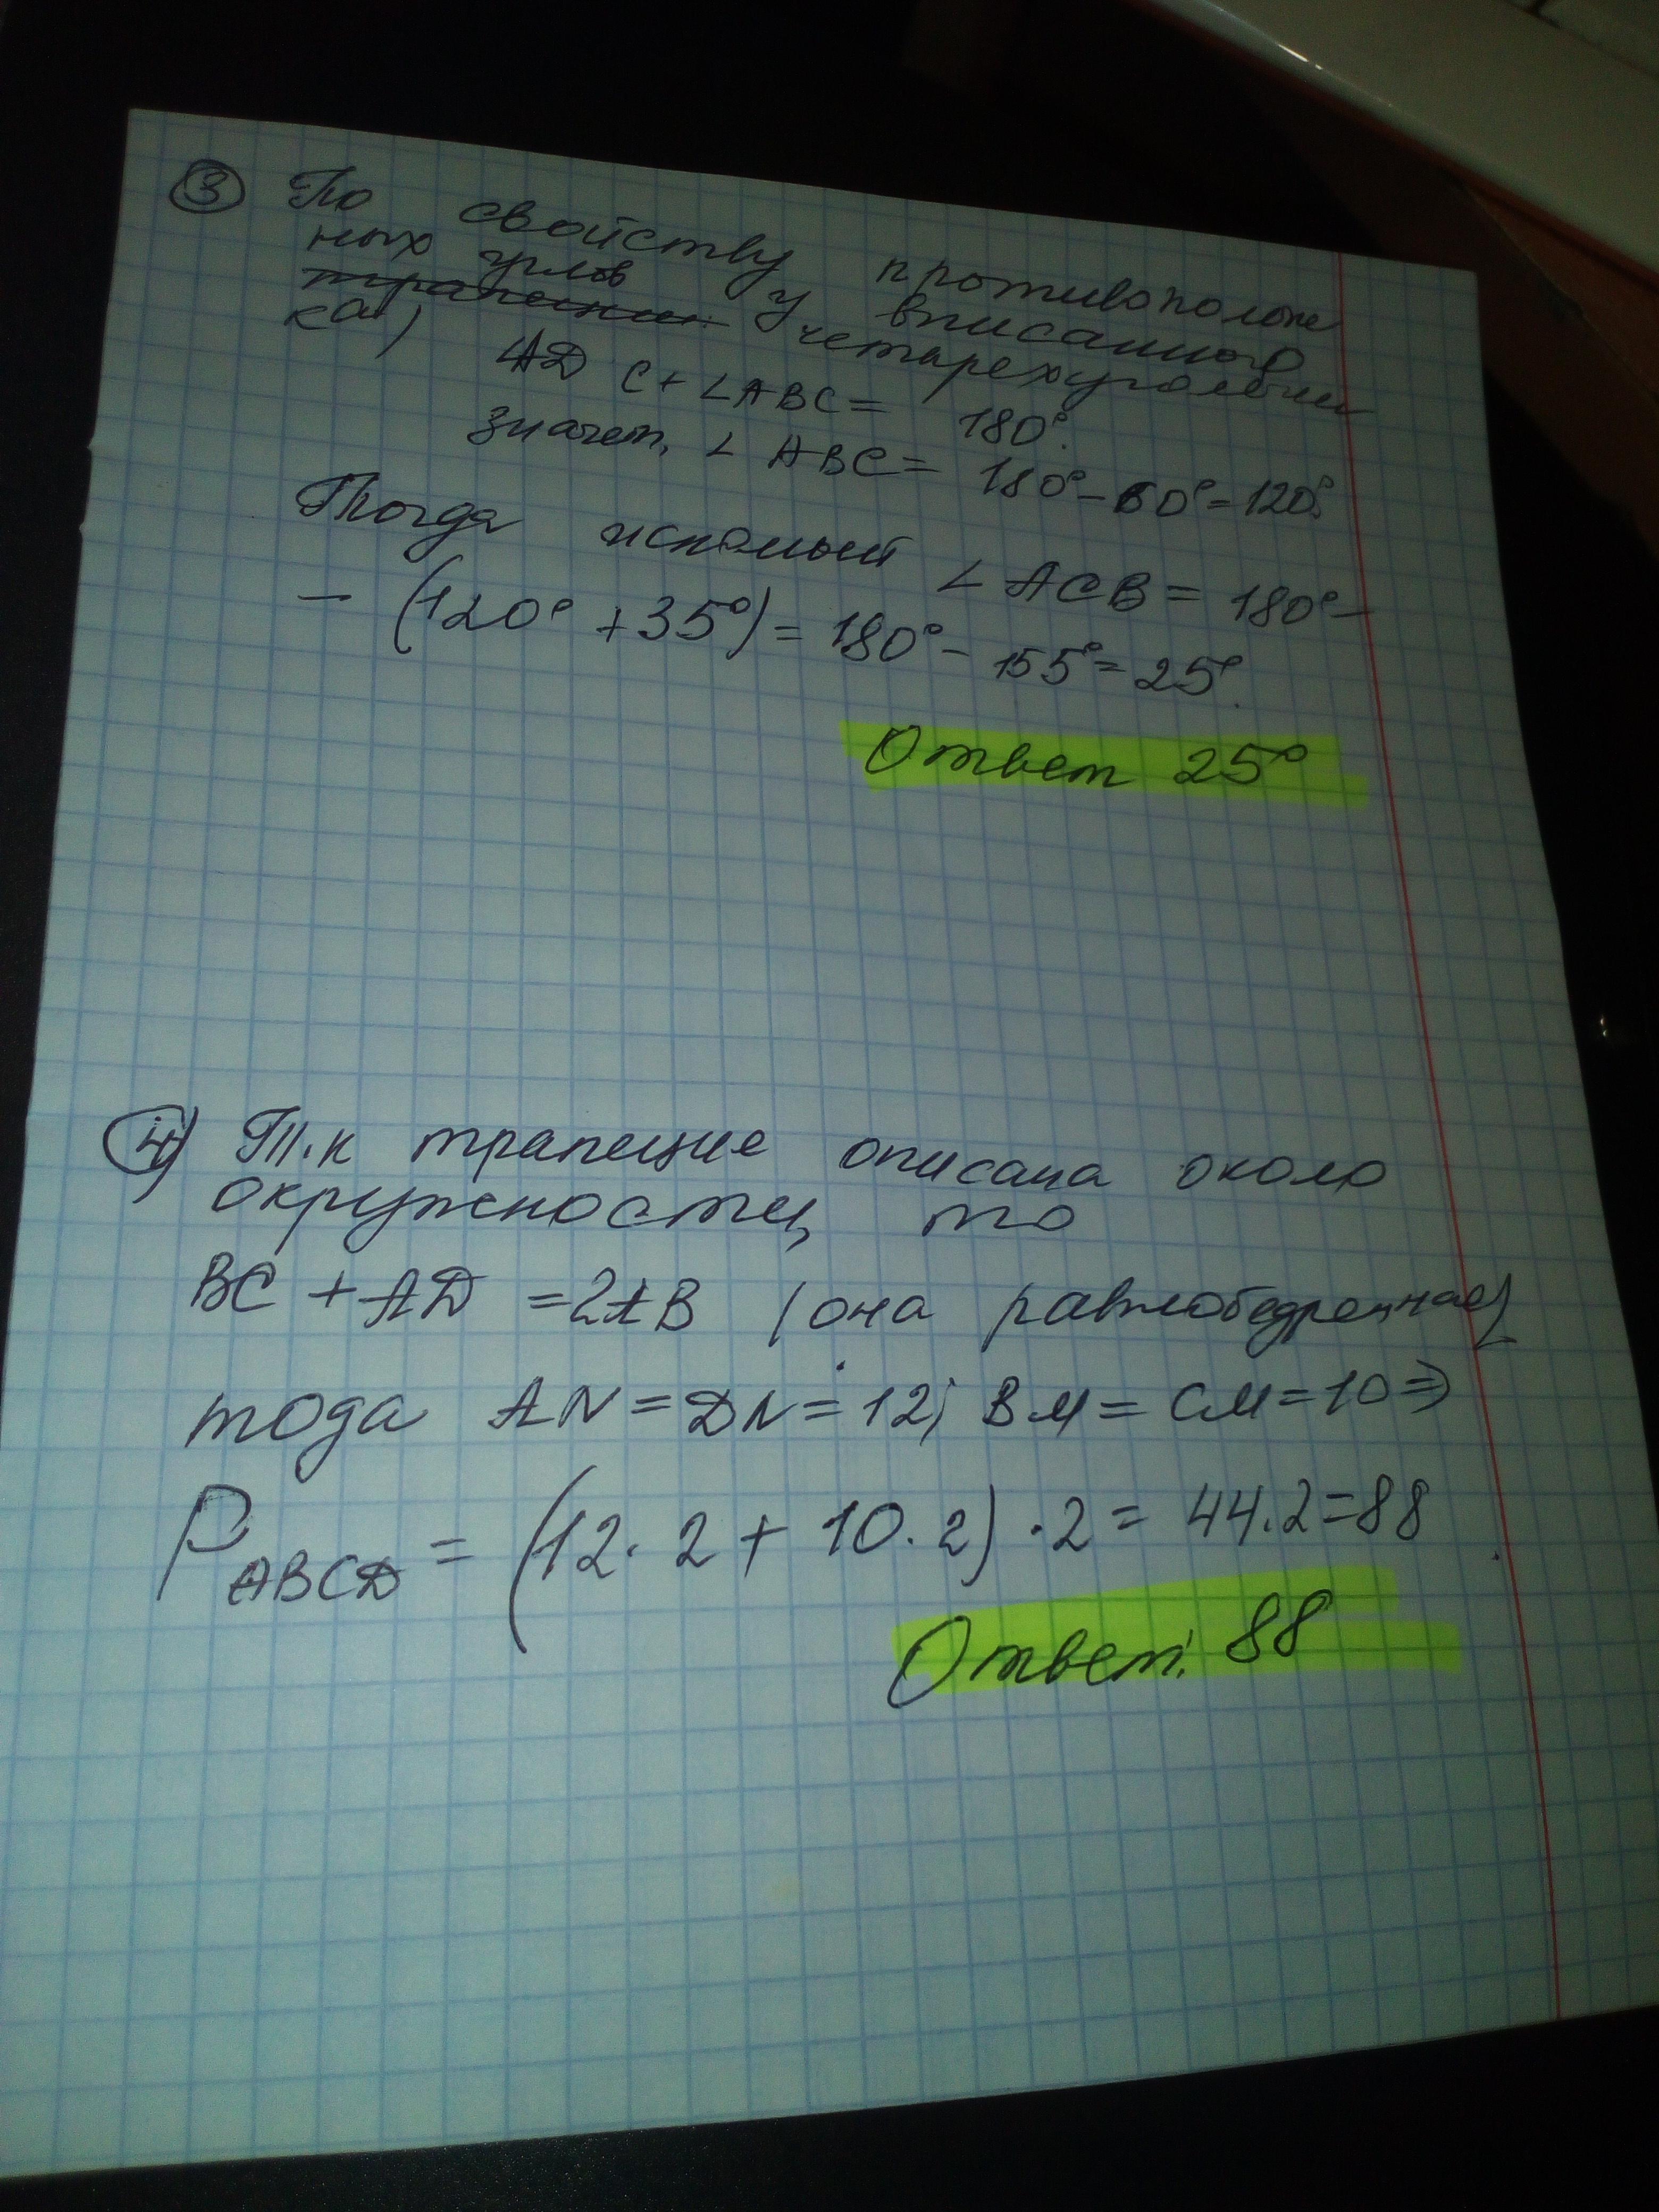 3 По свойству противополож
ных углов у вписанного
трапеции четырехугольни
ка)
∠AD C + ∠ABC = 180°.
значит, ∠ABC = 180° - 60° = 120°.
Тогда искомый ∠ACB = 180° -
- (120° + 35°) = 180° - 155° = 25°.
Ответ 25°
4) Т.к трапеция описана около
окружности, то
BC + AD = 2AB (она равнобедренная)
тода AN = DN = 12; BM = CM = 10 ⇒
P ABCD = (12 · 2 + 10 · 2) · 2 = 44 · 2 = 88
Ответ: 88